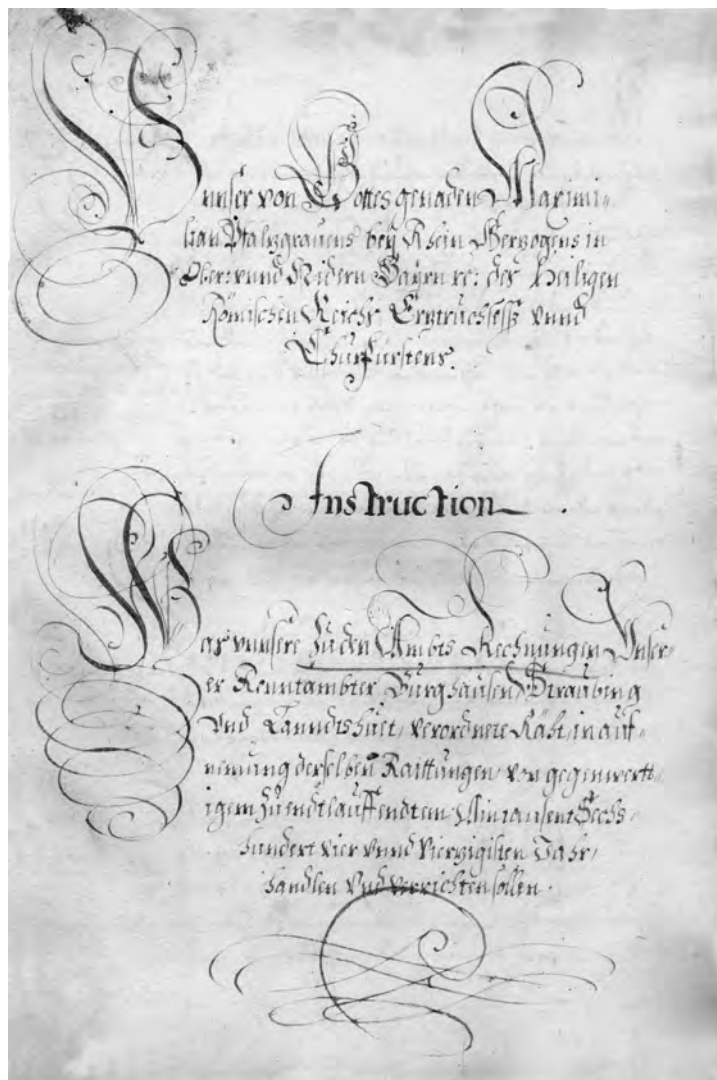 Unser von Gottes genaden Maximi-
lian Pfalzgrauens bey Rhein Herzogens in
Ober: vnnd Nidern Bayrn rc: des Heiligen
Römischen Reichs Erztruchsess vnnd
Churfürstens.
Instruction
Was vnnsere zu den Ambts Rechnungen Vnser-
er Renntambter Burghausen, Straubing
Vnd Lanndtshuet, verordnete Räht, in auf-
nemung derselben Raittungen, von gegenwertt-
igem zu endtlauffendtem Aintausent Sechs-
hundert vier vnnd vierzigisten Jahr,
handlen Vnd verrichten sollen.